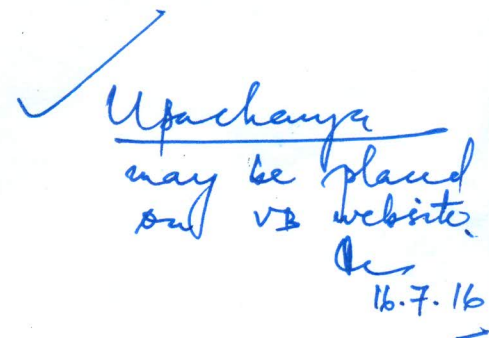 Upacharya
may be placed
on VB website.
16.7.16